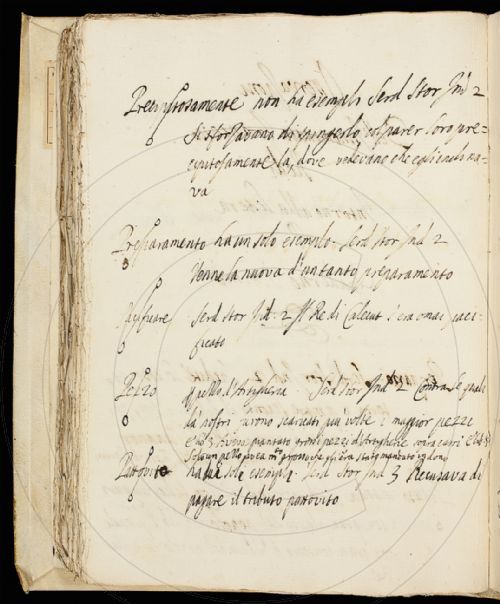 Precipitosamente non ha esempli Serd Stor Ind 2
si sforzavano di spingerlo col parer loro pre=
cipitosamente là, dove vedevano che egli inchina=
va
Preparamento ha un solo esemplo. Serd Stor Ind 2
Venne la nuova d'un tanto preparamento
Pacificare Serd stor Ind: 2 Il Re di Calecut s'era omai paci=
ficato
Pezzo pezzo d'Artiglieria Serd Stor Ind 2 Contra le quali
da nostri furono scaricati più volte i maggior pezzi
e lib 3. Aveva piantato pezzi d'Artiglierie sopra carri
solo un pezzo che gli era stato mandato in dono
Pattovito ha un solo esemplo. Serd Stor Ind 3 Recusava di
pagare il tributo pattovito